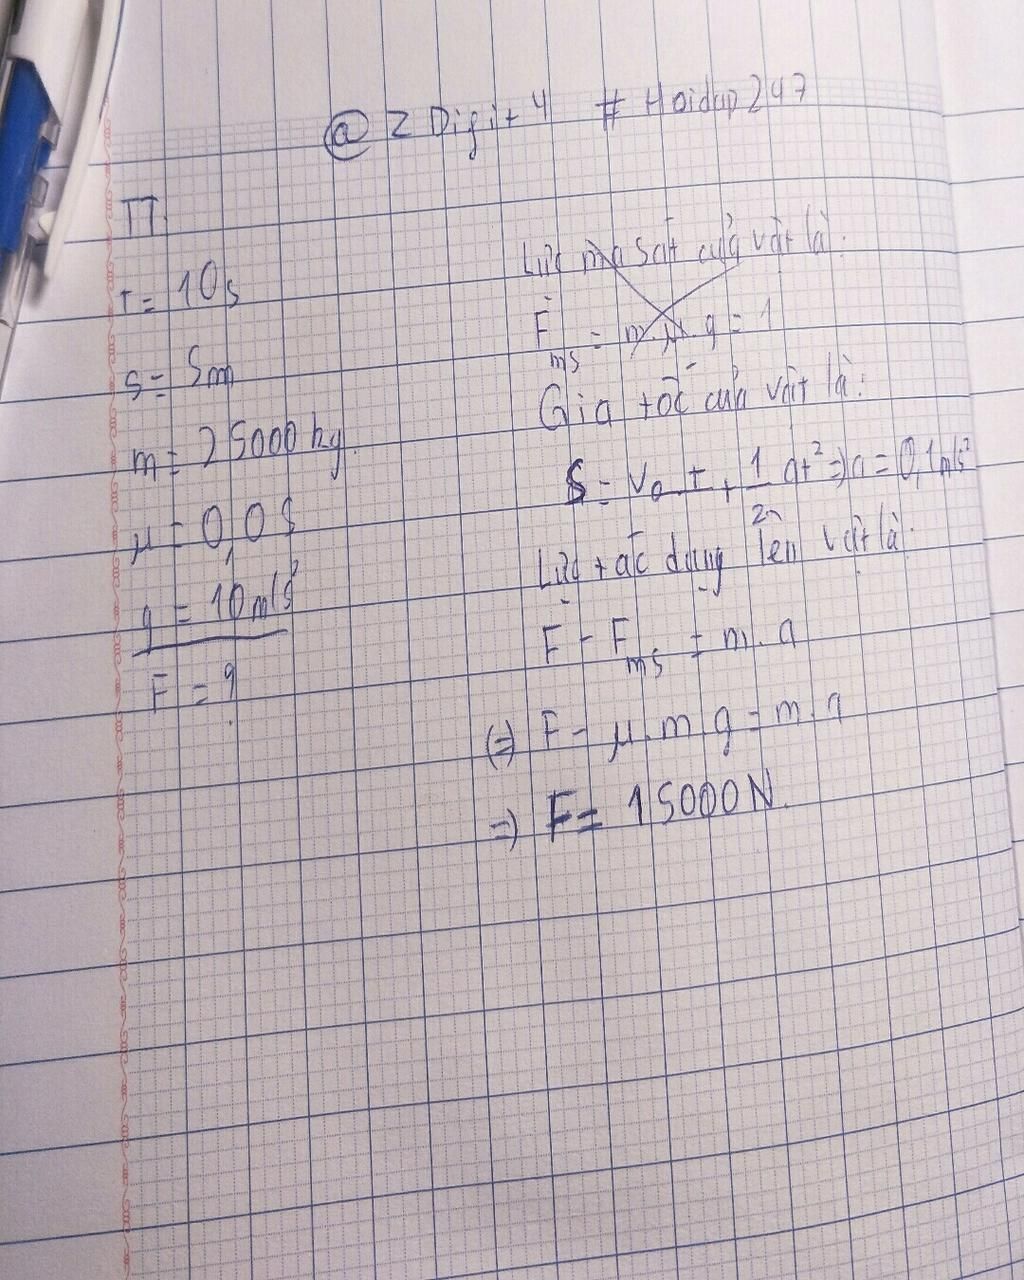 @ 2 Digit 4 # Hoidap 247
TT:
t = 10s
s = 5m
m = 25000 kg.
μ = 0,05
g = 10 m/s²
F = ?
Lực ma sát của vật là:
F ms = m.μ.g = 1
Gia tốc của vật là:
S = v₀.t + 1/2 at² => a = 0,1m/s²
Lực tác dụng lên vật là:
F - F ms = m.a
(=) F - μ.m.g = m.a
=> F = 15000N.